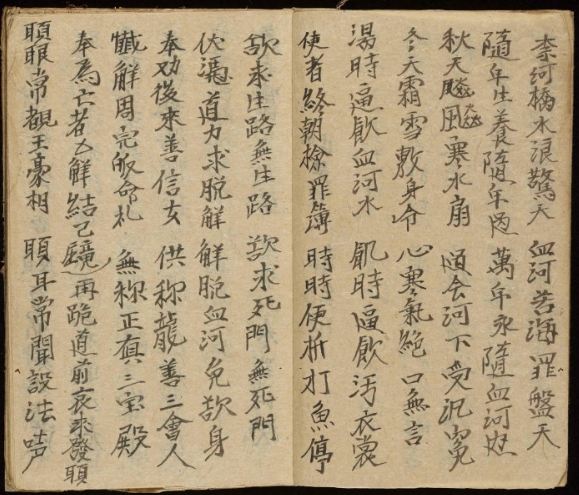 奈河橋水浪驚天 血河苦海罪盤天
隨年生養隨年 萬年永隨血河
秋天飈風寒水扇 河下受沉冤
冬天霜雪敷身 心寒氣絶口無言
湯時逼飲血河水 飢時逼飲汚衣裳
使者終朝撿罪簿 時時便折打魚停
欲求生路無生路 欲求死門無死門
伏慿道力求脫解 解脫血河免欲身
奉劝後來善信女 供称龍善三會人
懺解周完皈命礼 無称正真三宝殿
奉為亡者乞解結已 再跪道前哀求發願
願眼常覩王豪相 願耳常聞設法声